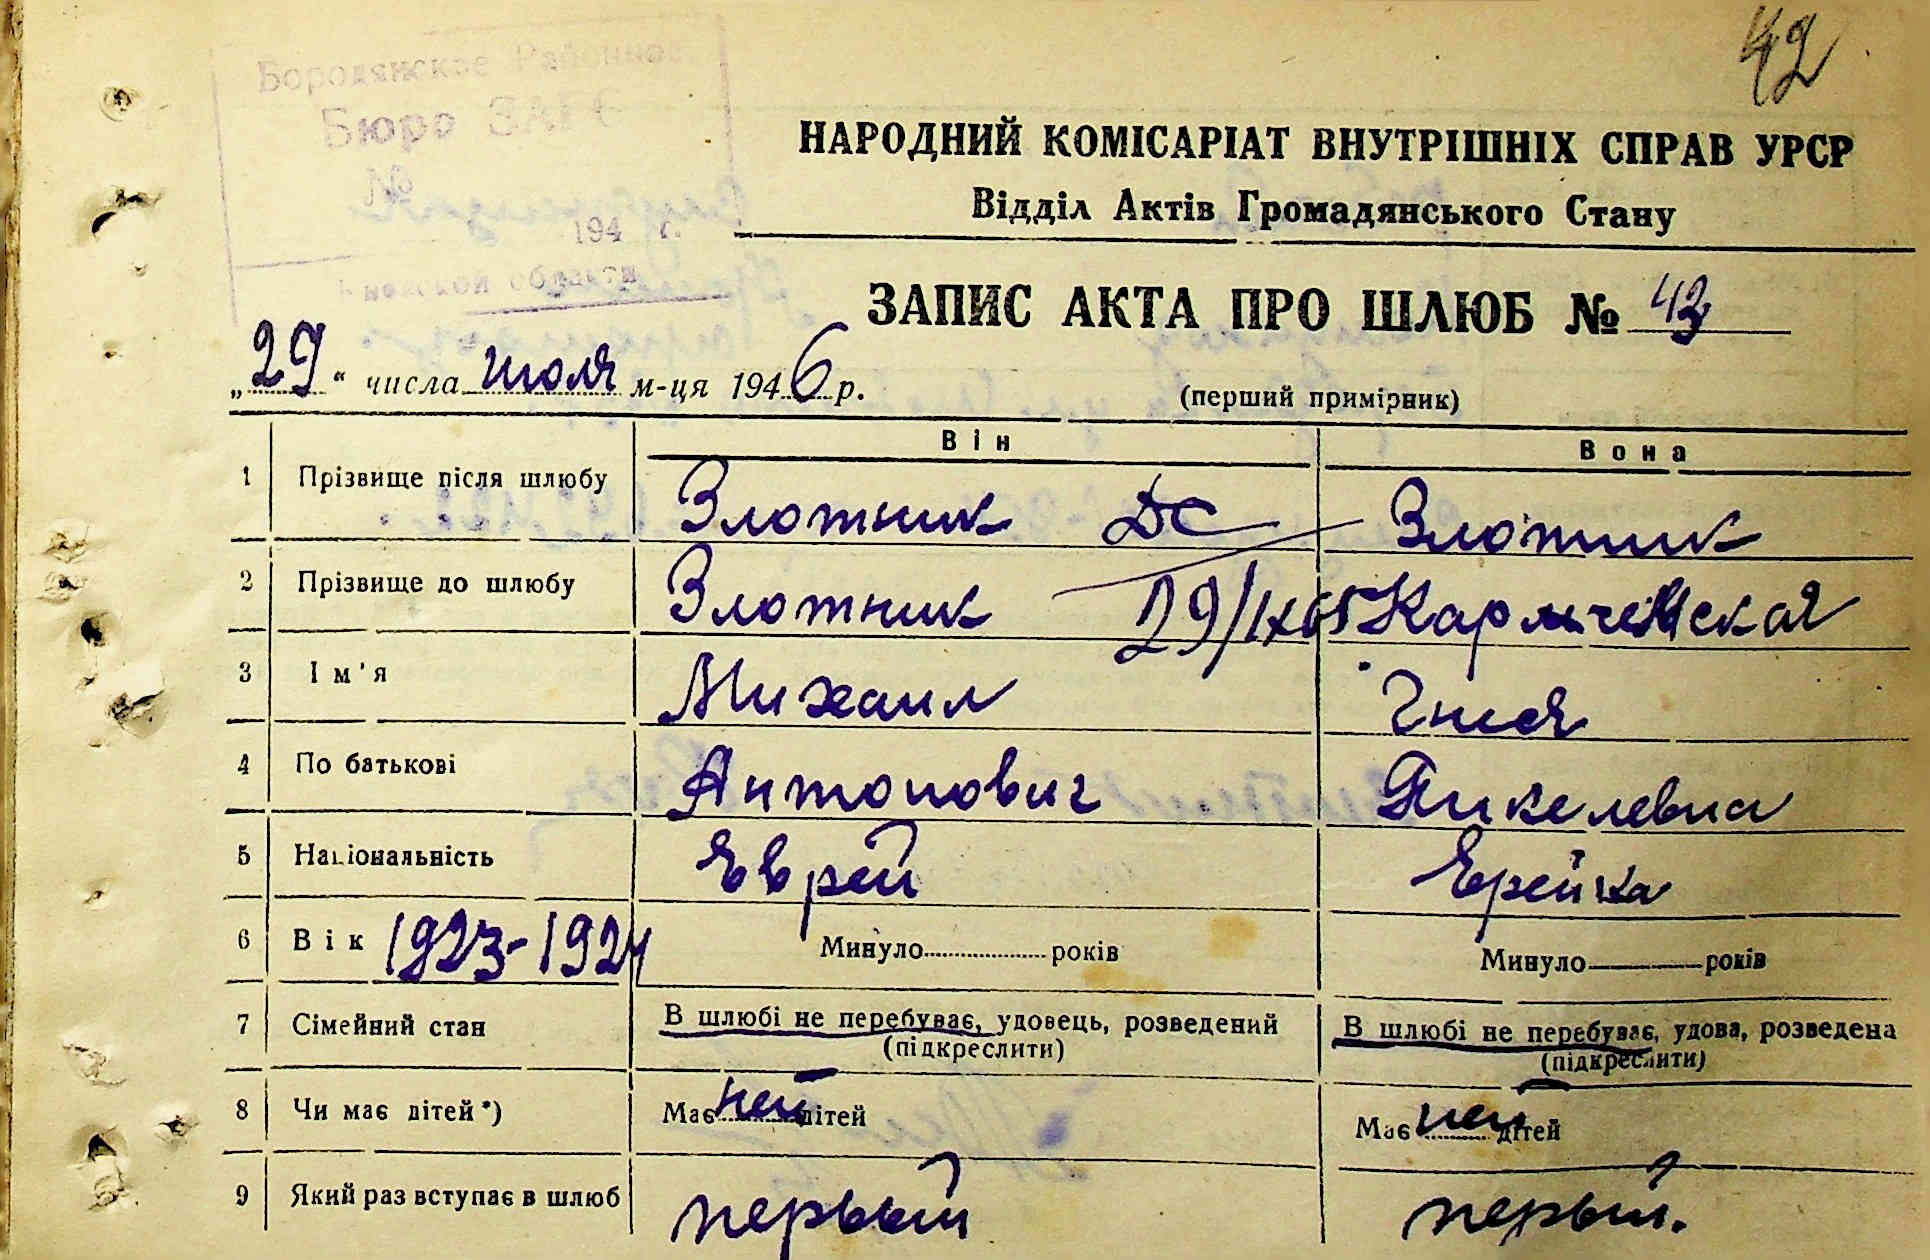 42
Бородянское Районное
Бюро ЗАГС
№
194 г.
Киевской области
НАРОДНИЙ КОМІСАРІАТ ВНУТРІШНІХ СПРАВ УРСР
Відділ Актів Громадянського Стану
ЗАПИС АКТА ПРО ШЛЮБ № 43
„29“ числа июля м-ця 1946 р.
(перший примірник)
Він Вона
1 Прізвище після шлюбу Злотник ДС Злотник
2 Прізвище до шлюбу Злотник 29/IX65
3 Ім'я Михаил
4 По батькові Антонович
5 Національність Еврей Ерейка
6 Вік 1923-1924 Минуло років Минуло років
7 Сімейний стан В шлюбі не перебуває, удовець, розведений В шлюбі не перебуває, удова, розведена
(підкреслити) (підкреслити)
8 Чи має дітей*) Має нет дітей Має нет дітей
9 Який раз вступає в шлюб первый первый.